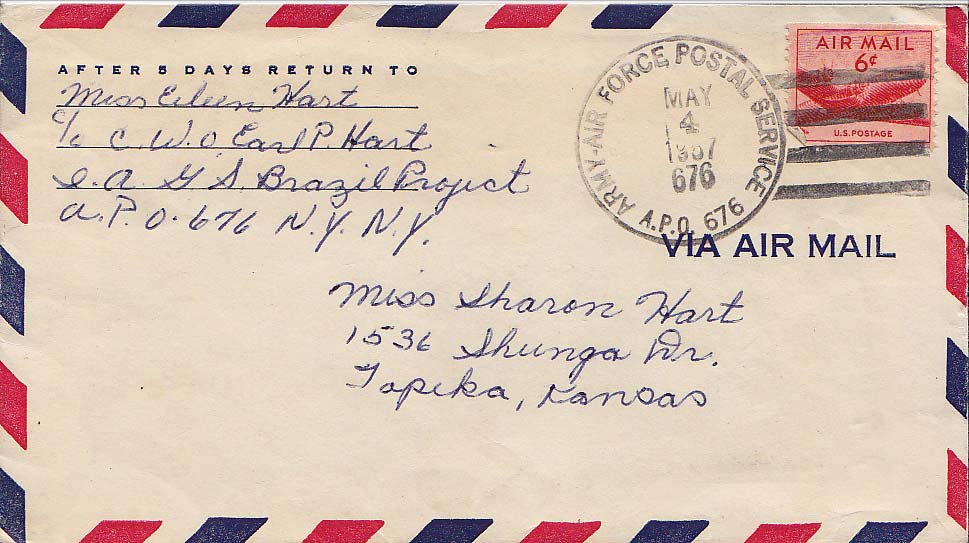 AFTER 5 DAYS RETURN TO
Miss Eileen Hart
c/o C. W. O Earl P. Hart
I. A. G S. Brazil Project
A. P. O. 676 N.Y. N.Y.
ARMY-AIR FORCE POSTAL SERVICE
MAY
4
1957
676
A.P.O. 676
AIR MAIL
6¢
U.S. POSTAGE
VIA AIR MAIL
Miss Sharon Hart
1536 Shunga Dr.
Topeka, Kansas